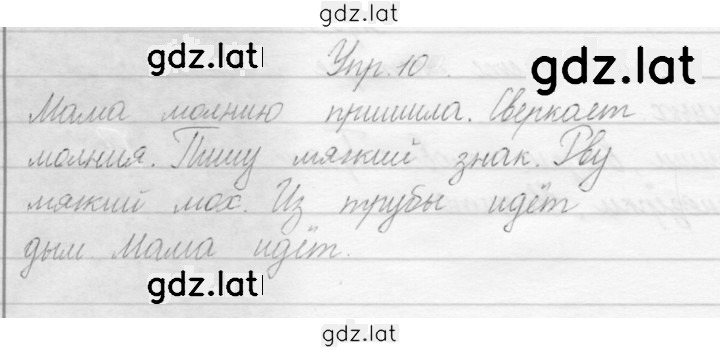 gdz.lat
gdz.lat Упр. 10. gdz.lat
Мама молнию пришила. Сверкает
молния. Пишу мягкий знак. Рву
мягкий мох. Из трубы идёт
дым. Мама идёт.
gdz.lat gdz.lat
gdz.lat